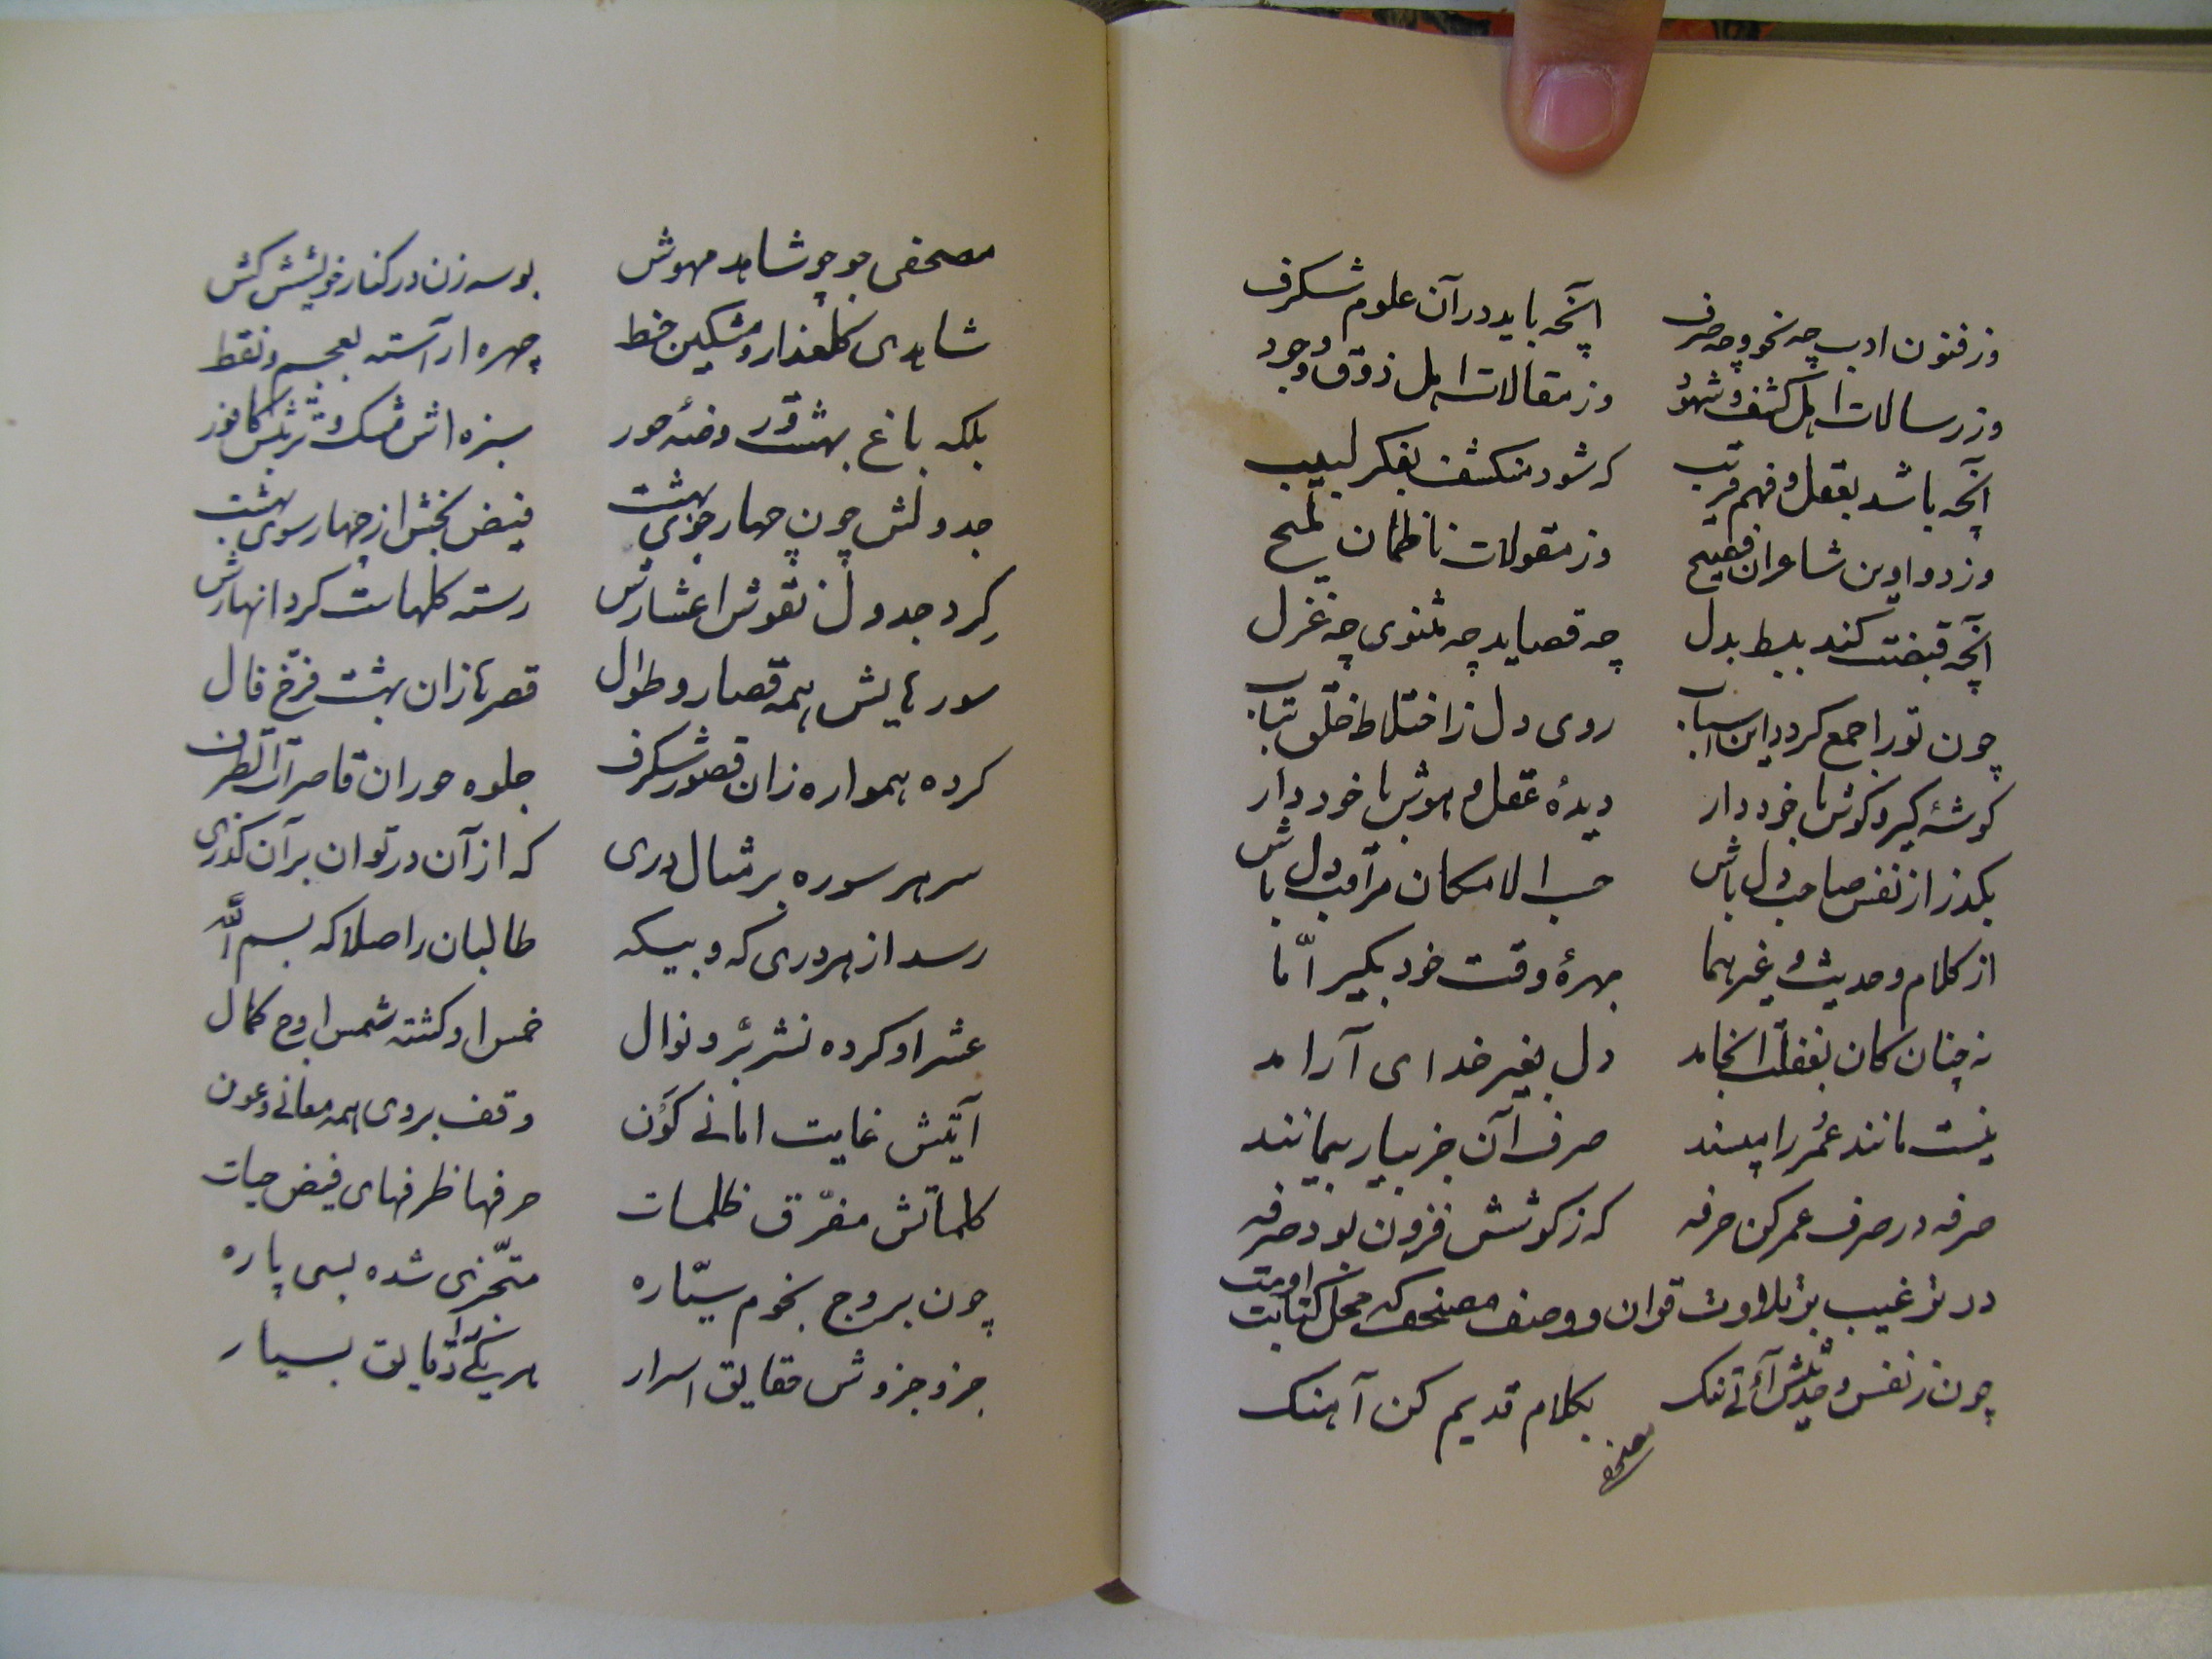 وز فنون ادب چه نحو و چه صرف آنچه باید در آن علوم شکرف
وز رسالات اهل کشف و شهود وز مقالات اهل ذوق و وجود
آنچه باشد بعقل و فهم قریب که شود منکشف بفکر لبیب
وز دواوین شاعران فصیح وز مقولات ناظمان ملیح
آنچه قبضت کند ببسط بدل چه قصاید چه مثنوی چه غزل
چون تو را جمع کردد این اسباب روی دل ز اختلاط خلق بتاب
کوشهٔ کیر و کوش با خود دار دیدهٔ عقل و هوش با خود دار
بکذر از نفس و صاحب دل باش حسب الامکان مراقب دل باش
از کلام و حدیث و غیرهما بهرهٔ وقت خود بکیر امّا
نه چنان کان بغفلت انجامد دل بغیر خدای آرامد
نیست مانند عُمر را مپسند صرف آن جز بیار بیمانند
صرفه در صرف عمر کن صرفه که ز کوشش فزون بود صرفه
در ترغیب بر تلاوت قران و وصف مصحف که محل کتابت اوست
چون ز نفس و حدیثش آئی تنک بکلام قدیم کن آهنک
مصحفی
مصحفی جو چو شاهد مهوش بوسه زن در کنار خویشش کش
شاهدی کلعذار و مشکین خط چهره آراسته بعجم و نقط
بلکه باغ بهشت و روضهٔ حور سبزه اش مشک و تربتش کافور
جدولش چون چهار جوی بهشت فیض بخش از چهار سوی بهشت
کِرد جدول نقوش اعشارش رسته کلهاست کرد انهارش
سورهایش همه قصار و طوال قصرها زان بهشت فرّخ فال
کرده همواره زان قصور شکرف جلوه حوران قاصرات الطرف
سر هر سوره بر مثال دری که از آن در توان بر آن کذری
رسد از هر دری که و بیکه طالبان را صلا که بسم الله
عشر او کرده نشر برّ و نوال خمس او کشته شمس اوج کمال
آیتش غایت امانی کَون وقف بروی همه معانی و عون
کلماتش مفرّق ظلمات حرفها ظرفهای فیض حیات
چون بروج نجوم سیّاره متجزّی شده بسی پاره
جزو جزوش حقایق اسرار هر یکی را دقایق بسیار